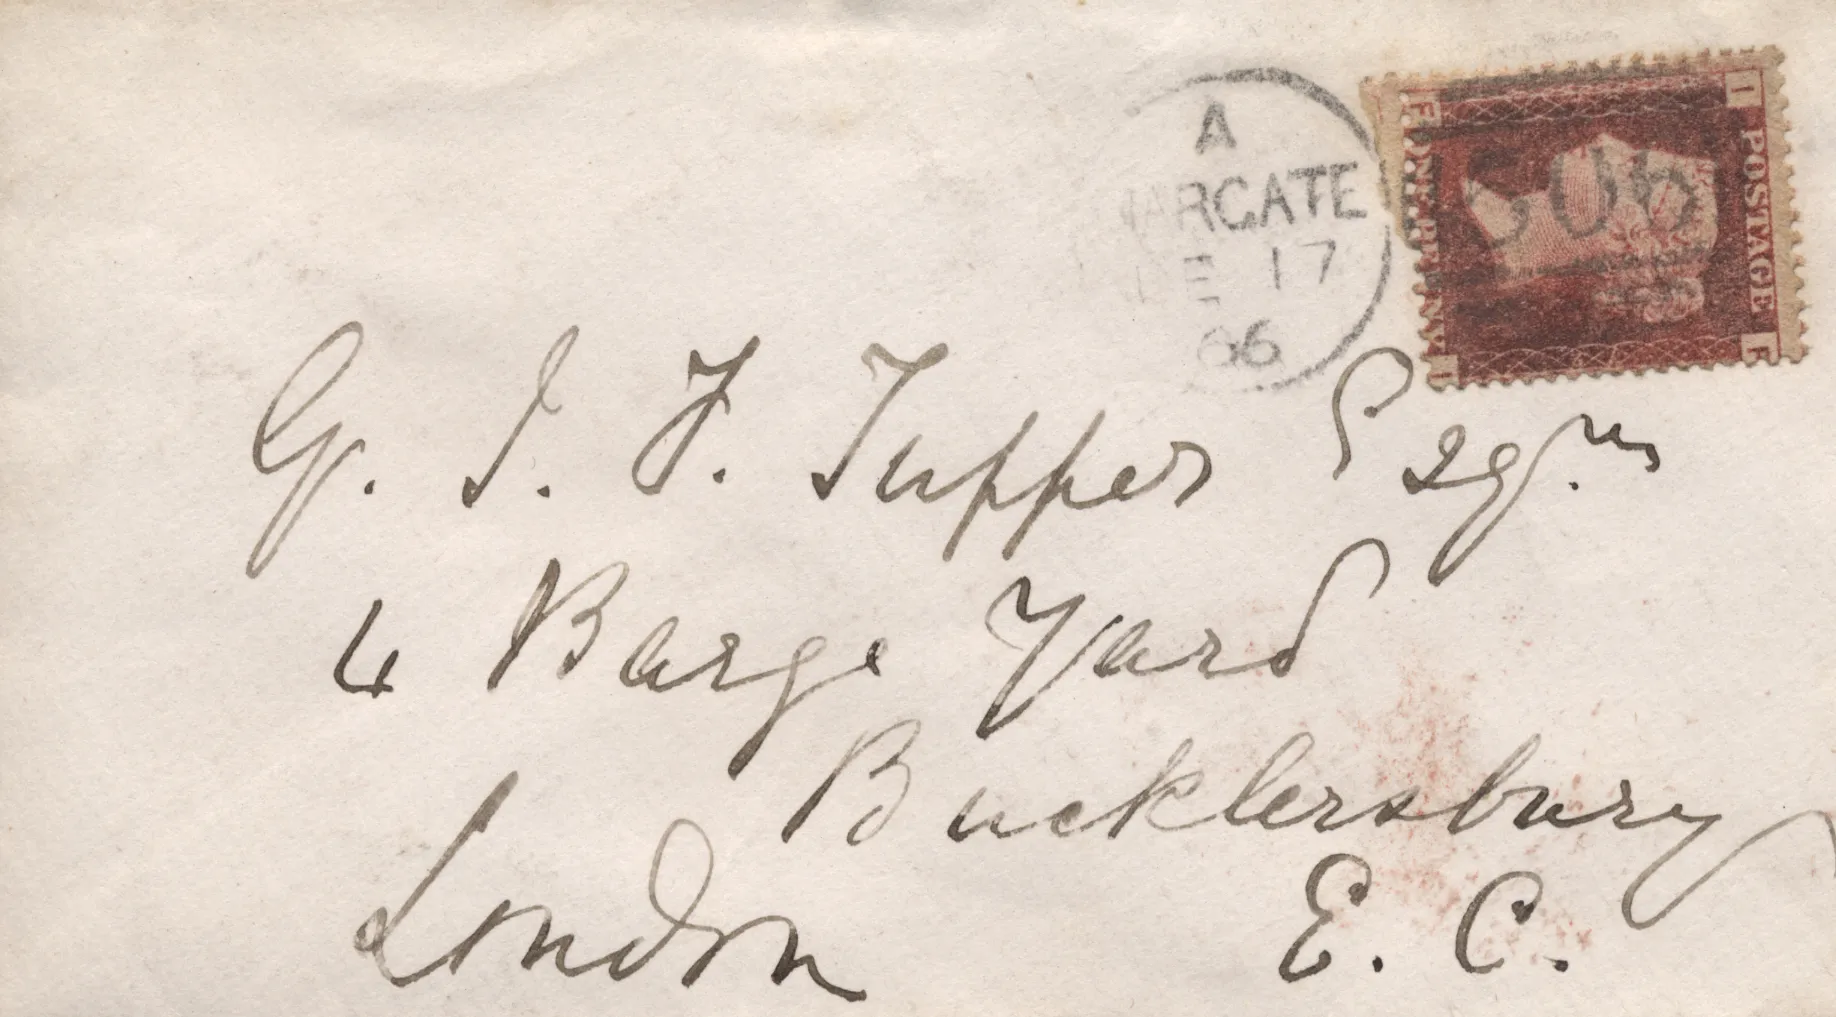 A
MARGATE
E 17
66
POSTAGE
ONE PENNY
506
G. J. F. Tupper Esqre
4 Barge Yard
Bucklersbury
London E. C.